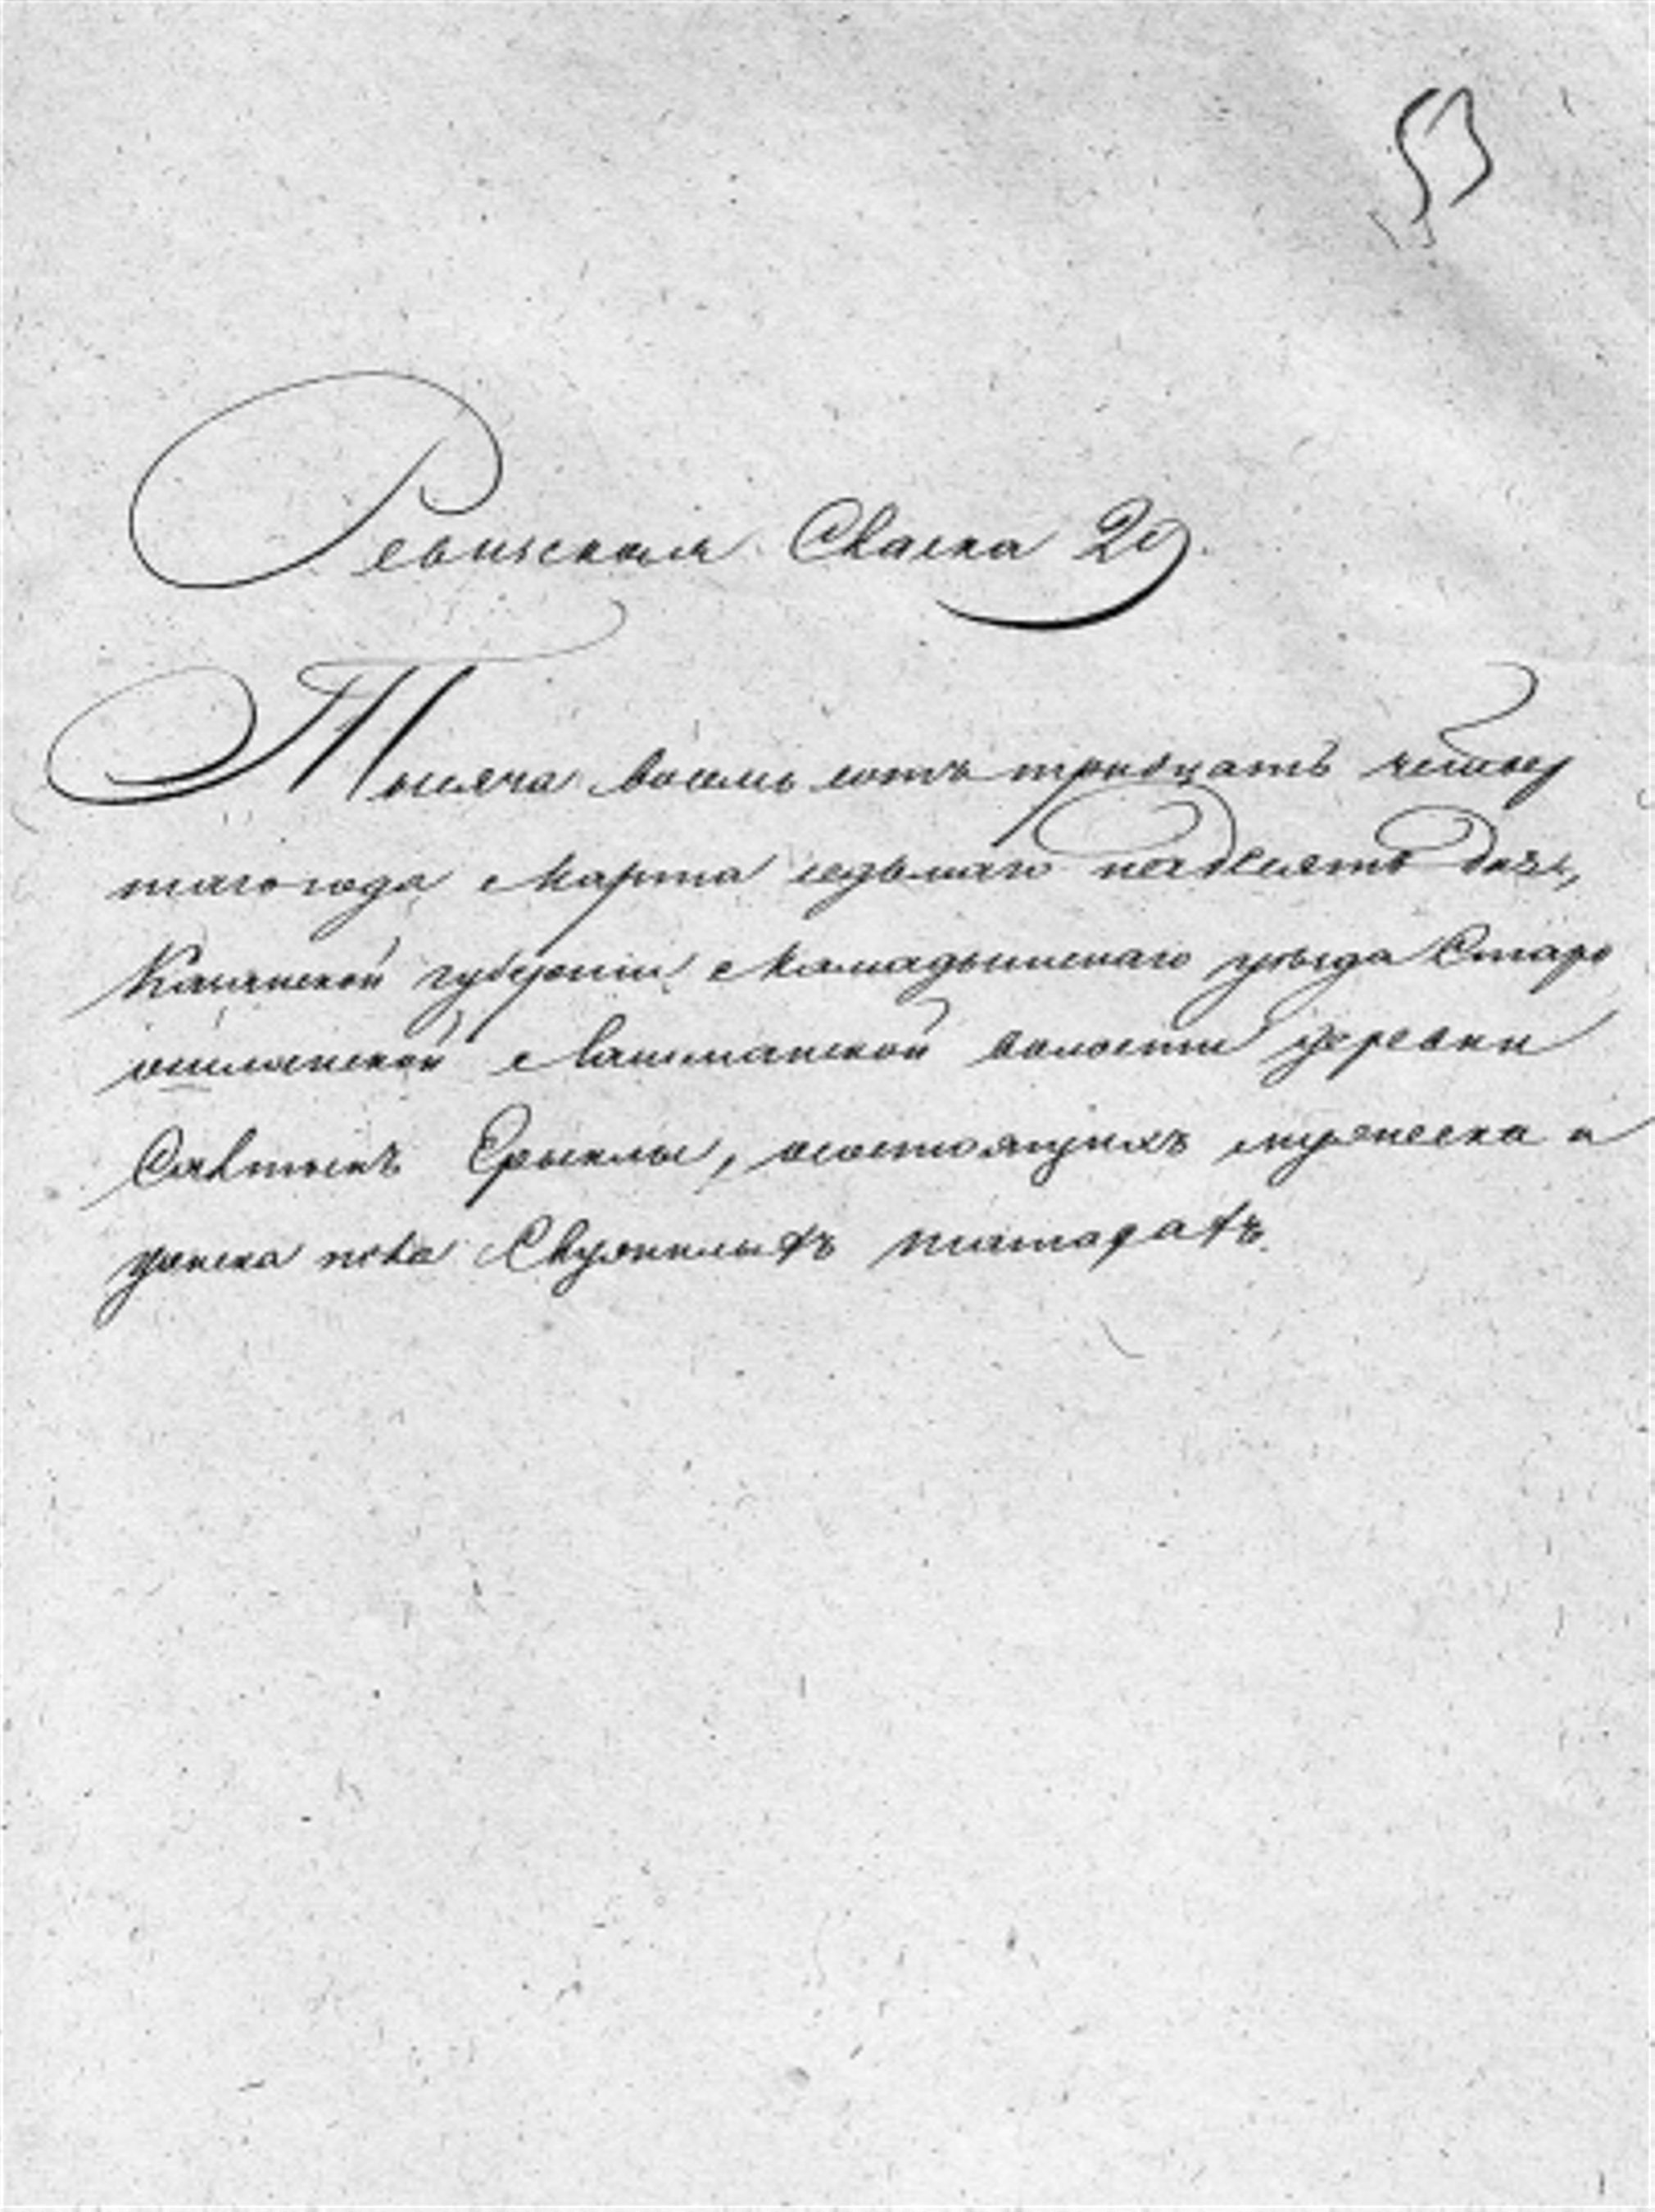 53
Ревизская Сказка
Тысяча восемь сотъ тридцать четвер
таго года Марта седьмаго надесять дня,
Казанской губернии Мамадышскаго уѣзда Старо
Лашманской волости деревни
Ерыклы, о состоящихъ мужеска и
женска пола Служилыхъ татарахъ.